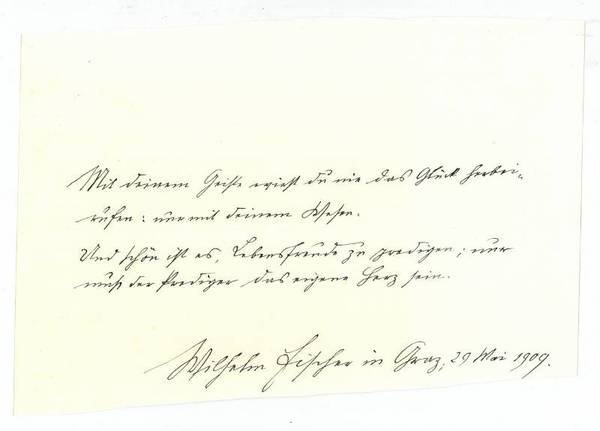 Mit deinem Geiste wirst du nie das Glück herbei-
rufen: nur mit deinem Wesen.
Und schön ist es, Lebensfreude zu predigen; nur
muß der Prediger das eigene Herz sein.
Wilhelm Fischer in Graz, 29 Mai 1909.